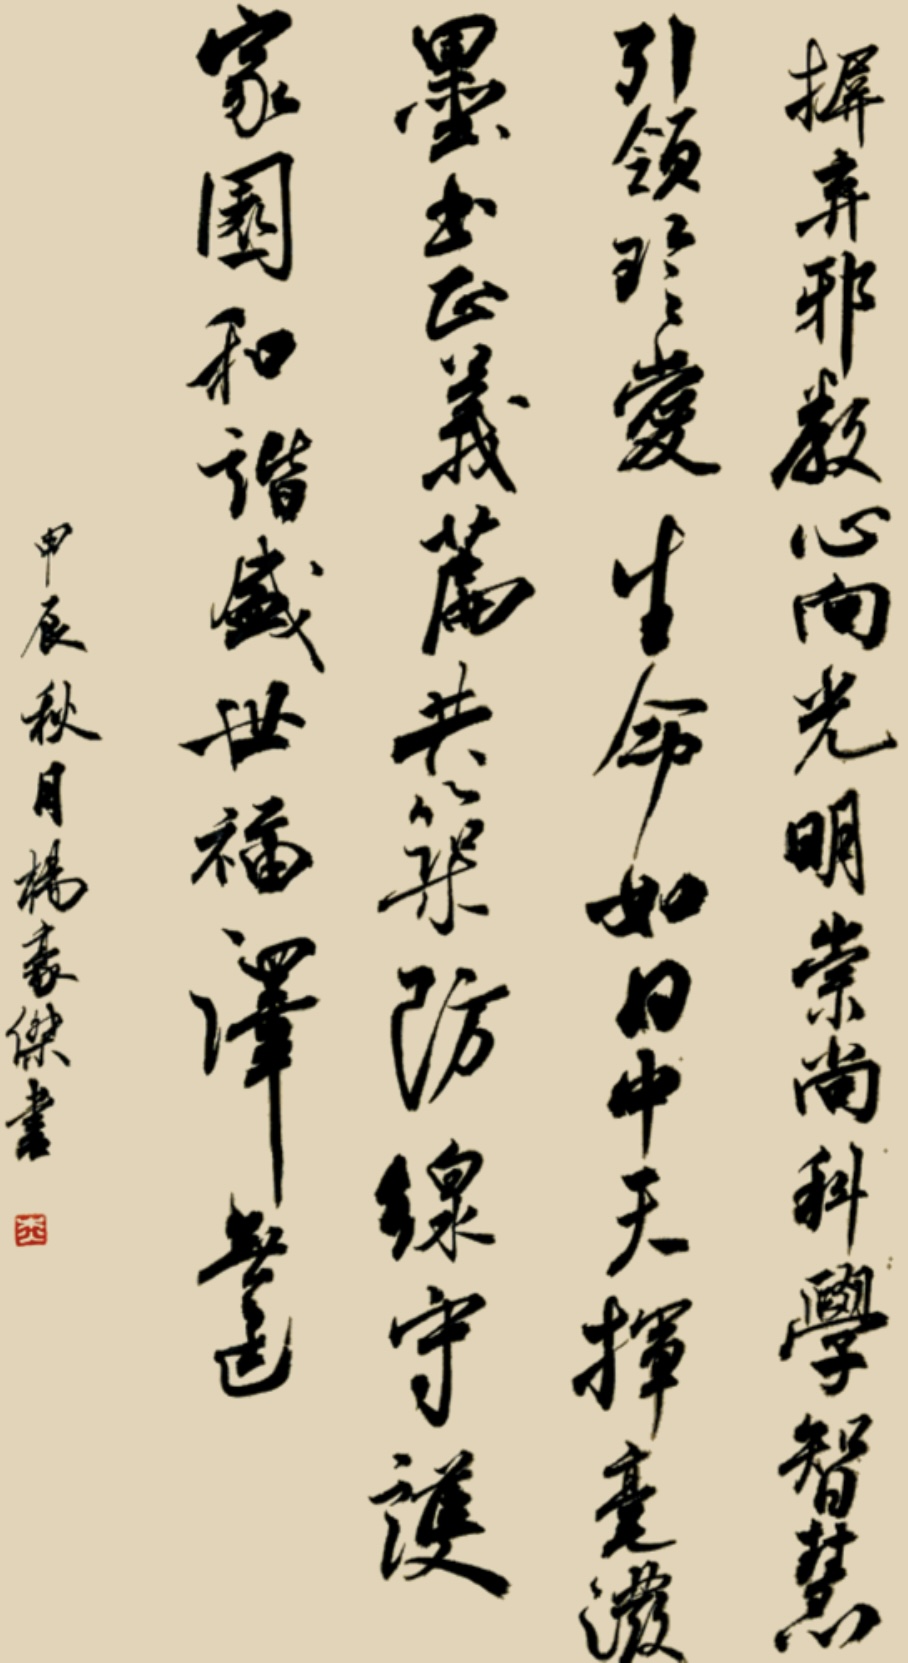 摒弃邪教心向光明崇尚科學智慧
引領珍愛生命如日中天揮毫潑
墨书正義篇共築防線守護
家園和諧盛世福澤無邊
甲辰秋月楊豪傑書